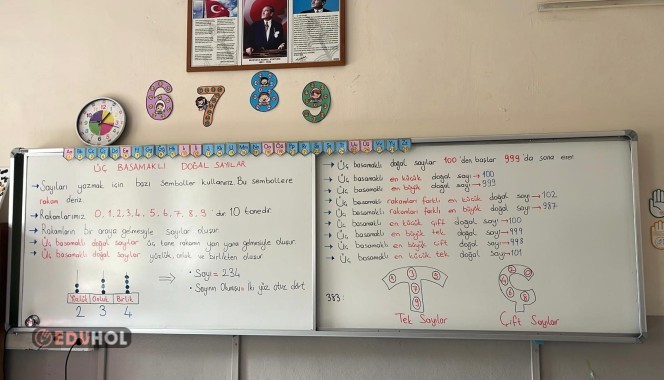 6 7 8 9
ÜÇ BASAMAKLI DOĞAL SAYILAR
→ Sayıları yazmak için bazı semboller kullanırız. Bu sembollere
rakam deriz.
→ Rakamlarımız 0, 1, 2, 3, 4, 5, 6, 7, 8, 9 dur. 10 tanedir.
→ Rakamların bir araya gelmesiyle sayılar oluşur.
→ Üç basamaklı doğal sayılar üç tane rakamın yan yana gelmesiyle oluşur.
→ Üç basamaklı doğal sayılar yüzlük, onluk ve birlikten oluşur.
Yüzlük Onluk Birlik
2 3 4
⇒ • Sayı = 234
• Sayının Okunuşu = İki yüz otuz dört
→ Üç basamaklı doğal sayılar 100'den başlar 999'da sona erer.
→ Üç basamaklı en küçük doğal sayı → 100
→ Üç basamaklı en büyük doğal sayı → 999
→ Üç basamaklı rakamları farklı en küçük doğal sayı → 102
→ Üç basamaklı rakamları farklı en büyük doğal sayı → 987
→ Üç basamaklı en küçük çift doğal sayı → 100
→ Üç basamaklı en büyük tek doğal sayı → 999
→ Üç basamaklı en büyük çift doğal sayı → 998
→ Üç basamaklı en küçük tek doğal sayı → 101
383:
1 3 5
7
9
Tek Sayılar
2 0
4
6 8
Çift Sayılar
EDUHOL